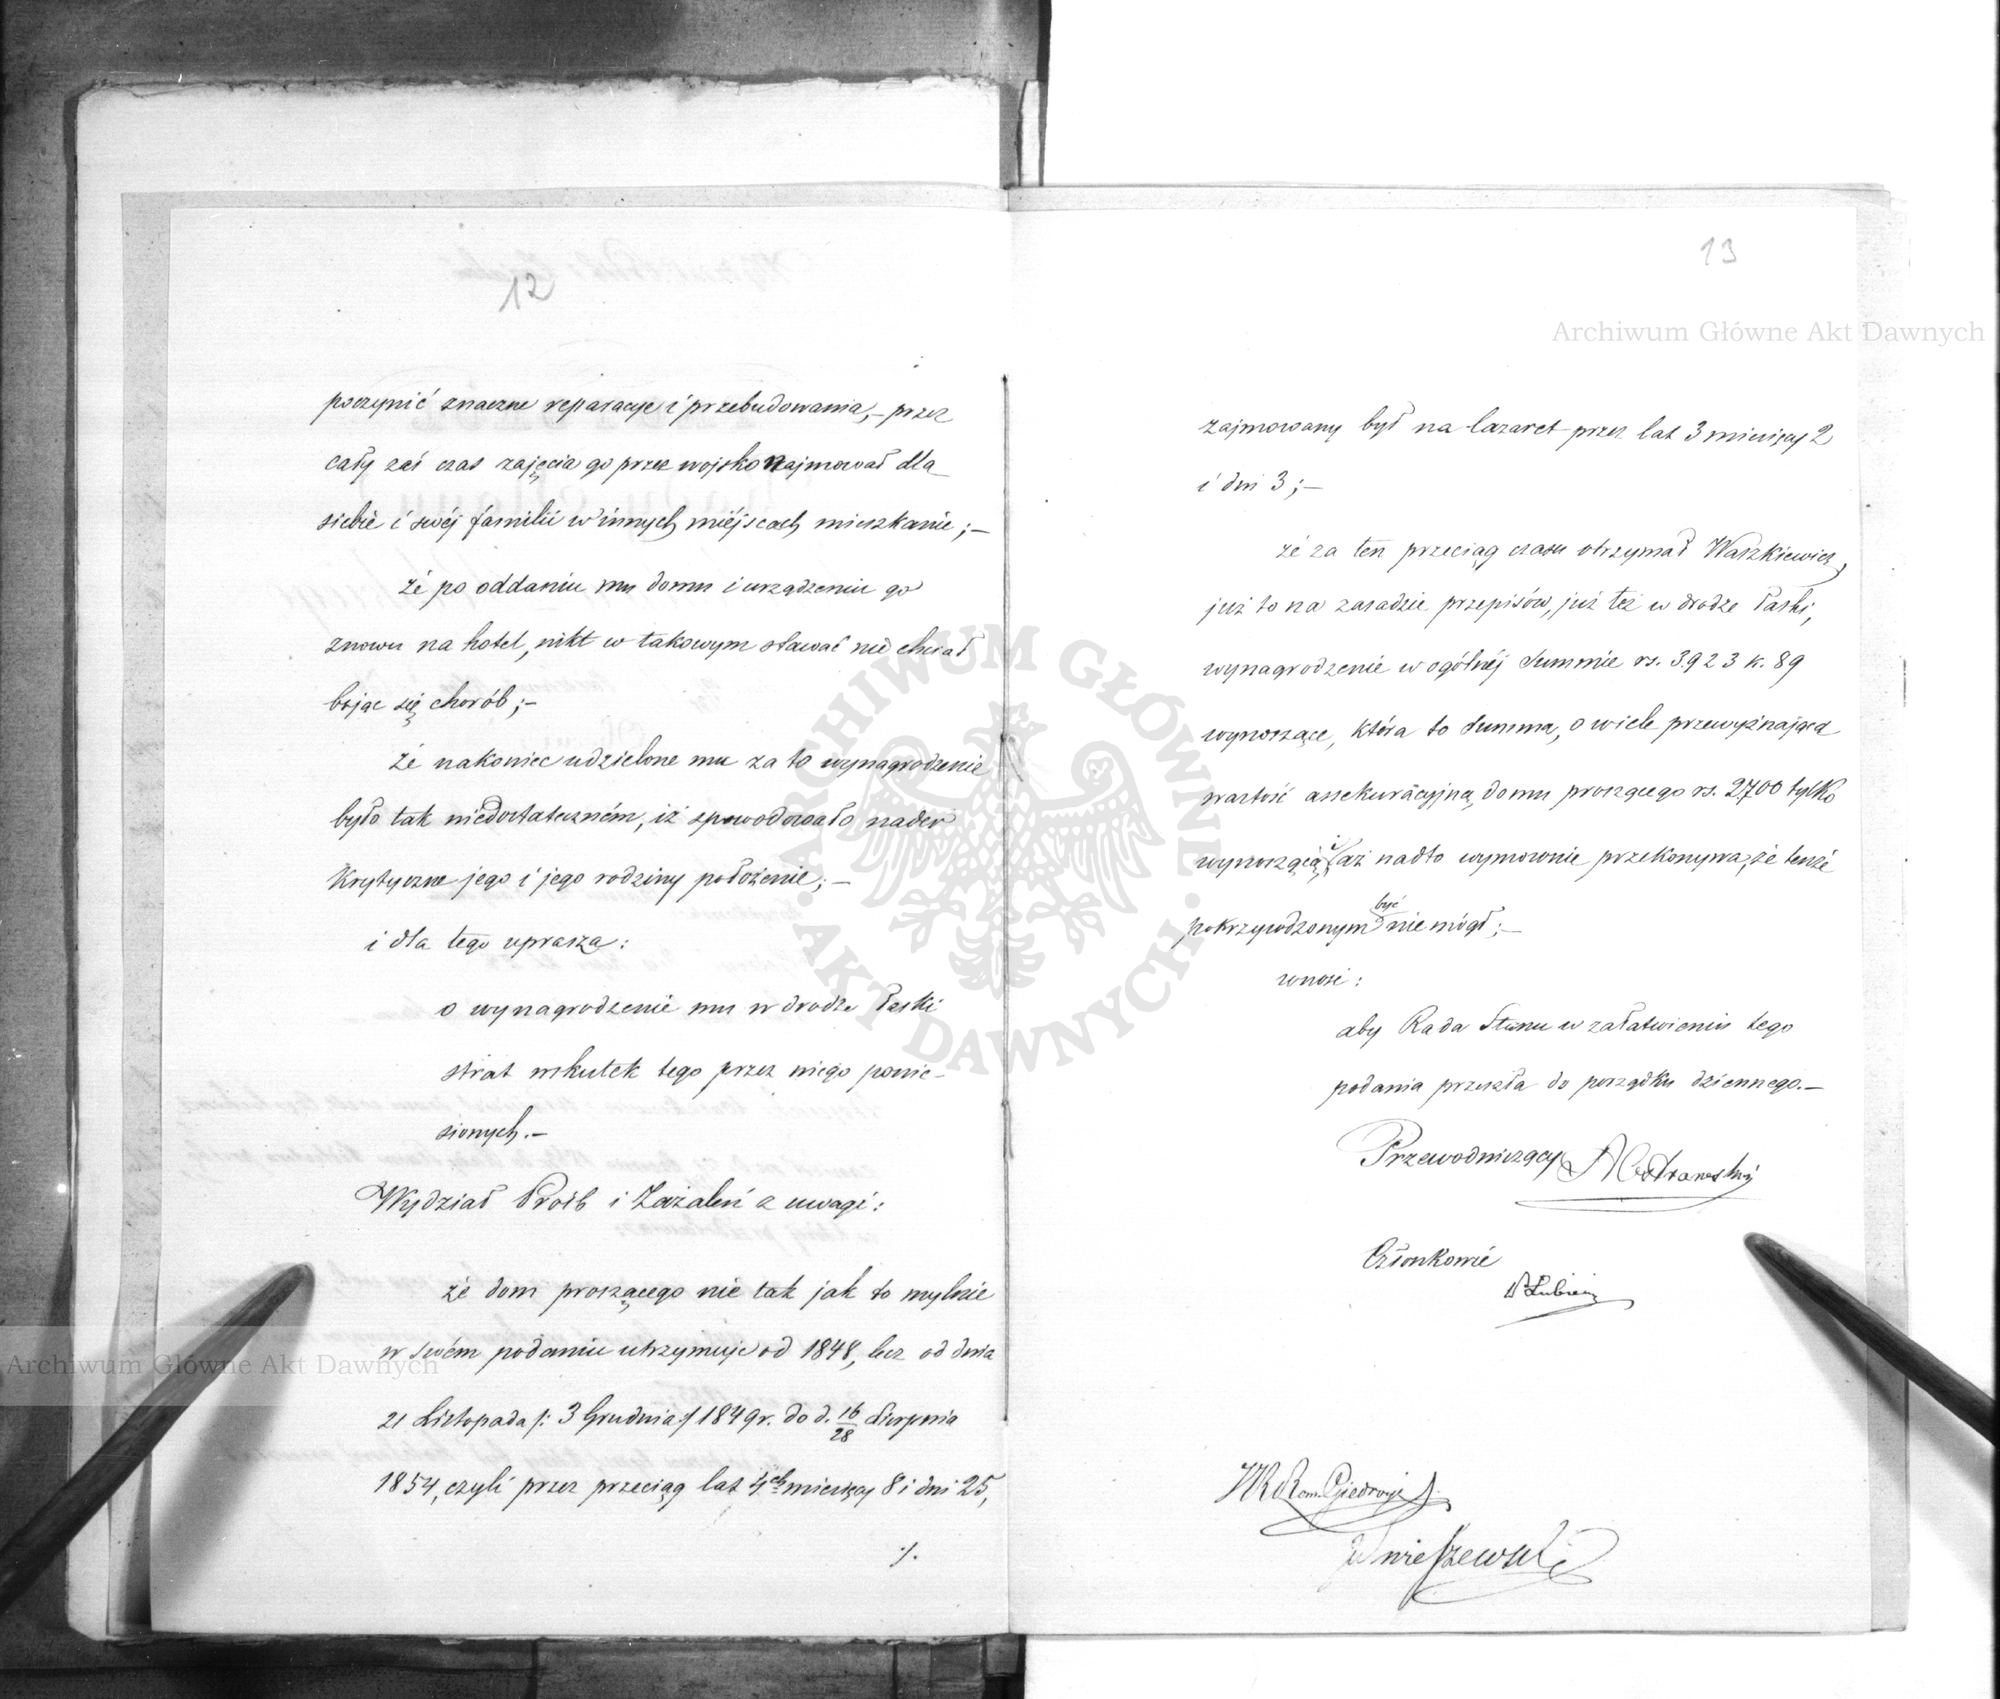 12
poczynić znaczne reparacye i przebudowania, – przez
cały zaś czas zajęcia go przez wojsko najmował dla
siebie i swéj familii w innych miéjscach mieszkanie; –
że po oddaniu mu domu i urządzeniu go
znowu na hotel, nikt w takowym stawać nie chciał
bojąc się chorób; –
że nakoniec udzielone mu za to wynagrodzenie
było tak niedostateczném, iż spowodowało nader
krytyczne jego i jego rodziny położenie; –
i dla tego uprasza:
o wynagrodzenie mu w drodze łaski
strat wskutek tego przez niego ponie-
sionych. –
Wydział Próśb i Zażaleń z uwagi:
że dom proszącego nie tak jak to mylnie
w swém podaniu utrzymuje od 1848, lecz od dnia
21 Listopada /: 3 Grudnia :/ 1849 r. do d. 16/28 Sierpnia
1854, czyli przez przeciąg lat 4ch miesięcy 8 i dni 25,
./.
13
Archiwum Główne Akt Dawnych
zajmowany był na lazaret przez lat 3 miesięcy 2
i dni 3; –
że za ten przeciąg czasu otrzymał Waszkiewicz,
już to na zasadzie przepisów, już też w drodze łaski,
wynagrodzenie w ogólnéj summie rs. 3923 k. 89
wynoszące, która to summa, o wiele przewyższająca
wartość assekuracyjną domu proszącego rs. 2700 tylko
wynoszącą, aż nadto wymownie przekonywa, że tenże
pokrzywdzonym być nie mógł; –
wnosi:
aby Rada Stanu w załatwieniu tego
podania przeszła do porządku dziennego. –
Przewodniczący A Ostrowski
Członkowie
Łubień
Rom. Giedroyć
ARCHIWUM GŁÓWNE · AKT DAWNYCH ·
Archiwum Główne Akt Dawnych